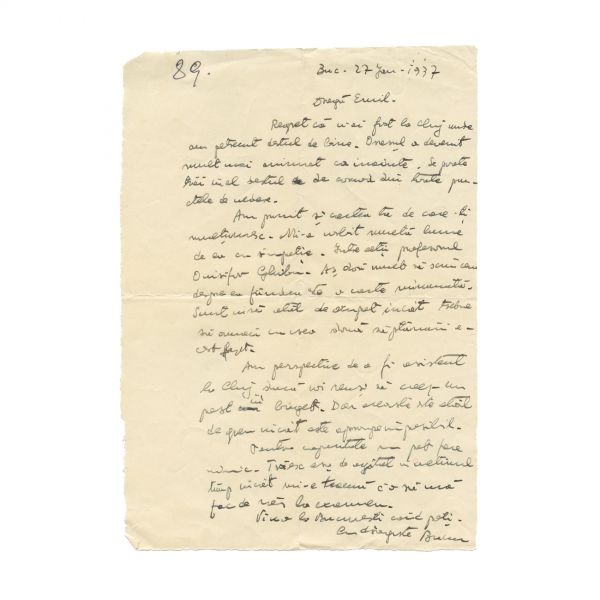 89.
Buc. 27 Ian. 1937
Dragă Emil.
Regret că n-ai fost la Cluj unde
am petrecut destul de bine. Orașul a devenit
mult mai animat ca înainte. Se poate
trăi în el destul de comod din toate punc-
tele de vedere.
Am primit și cartea ta de care-ți
mulțumesc. Mi-a vorbit multă lume
de ea cu simpatie. Între alții profesorul
Onisifor Ghibu. Aș dori mult să scriu ceva
despre ea fiindcă e o carte minunată.
Sunt însă atât de ocupat încât trebue
să amân cu vreo două săptămâni a-
cest fapt.
Am perspective de a fi asistent
la Cluj dacă voi reuși să creez un
post în buget. Dar aceasta este atât
de greu încât este aproape imposibil.
Pentru capacitate nu pot face
nimic. Trăesc așa de agitat în ultimul
timp încât mi-e teamă că o să mă
fac de râs la examen.
Vino la București când poți.
Cu dragoste